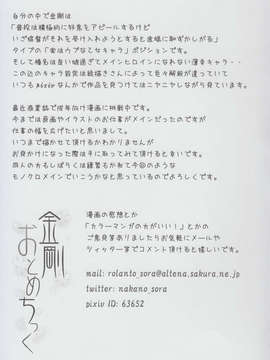 自分の中で金剛は
「普段は積極的に好意をアピールするけど
いざ提督がそれを受け入れようとすると途端に恥ずかしがる」
タイプの「実はウブな乙女キャラ」ポジションです。
そして榛名は良い娘過ぎてメインヒロインになれない薄幸キャラ・・・
この辺のキャラ設定は絵描きさんによって色々解釈が違っていて
いつもpixivなんかで作品を見つけてはニヤニヤしながら見ています。
最近商業誌で成年向け漫画に挑戦中です。
今までは長画やイラストのお仕事がメインだったのですが
仕事の幅を広げたいと思いまして。
いつまで描かせて頂けるかわかりませんが
お見かけになった際は手に取ってみて頂けると幸いです。
同人のカラーもしばらくは練習もかねて今回のような
モノクロメインでいこうかなと思っているのでよろしくです。
漫画の感想とか
「カラーマンガの方がいい！」とかの
ご意見等ありましたらお気軽にメールや
ツイッター等でコメント頂けると嬉しいです。
金剛
おとめちっく
mail: rolanto_sora@altena.sakura.ne.jp
twitter: nakano_sora
pixiv ID: 63652